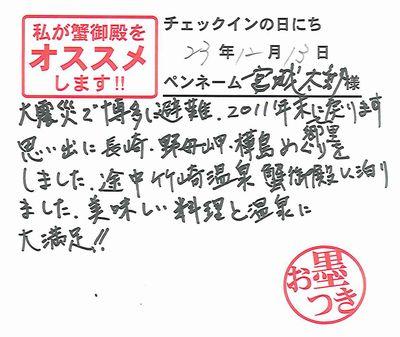 私が蟹御殿を
オススメ
します!!
チェックインの日にち
23年12月13日
ペンネーム宮城太郎様
大震災で博多に避難.2011年末に戻ります
郷里
思い出に長崎・野母岬・樺島めぐりを
しました.途中竹崎温泉蟹御殿に泊り
ました.美味しい料理と温泉に
大満足!!
お墨つき